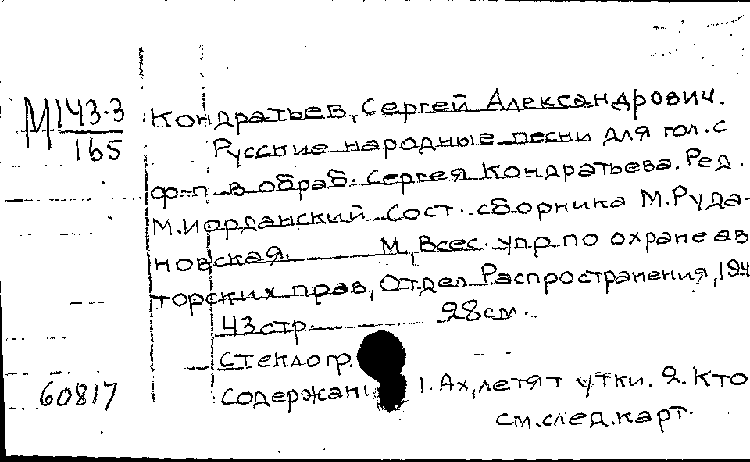 М143-3
165
Кондратьев, Сергей Александрович.
Русские народные песни для гол. с
ф-п. в обраб. Сергея Кондратьева. Ред.
М. Иорданский. Сост. сборника М. Руда-
новская. М, Всес. упр. по охране ав
торских прав, Отдел Распространения, 194
43 стр. 28 см.
Стеклогр.
Содержани 1. Ах, летят утки. 2. Кто
см. след. карт.
60817